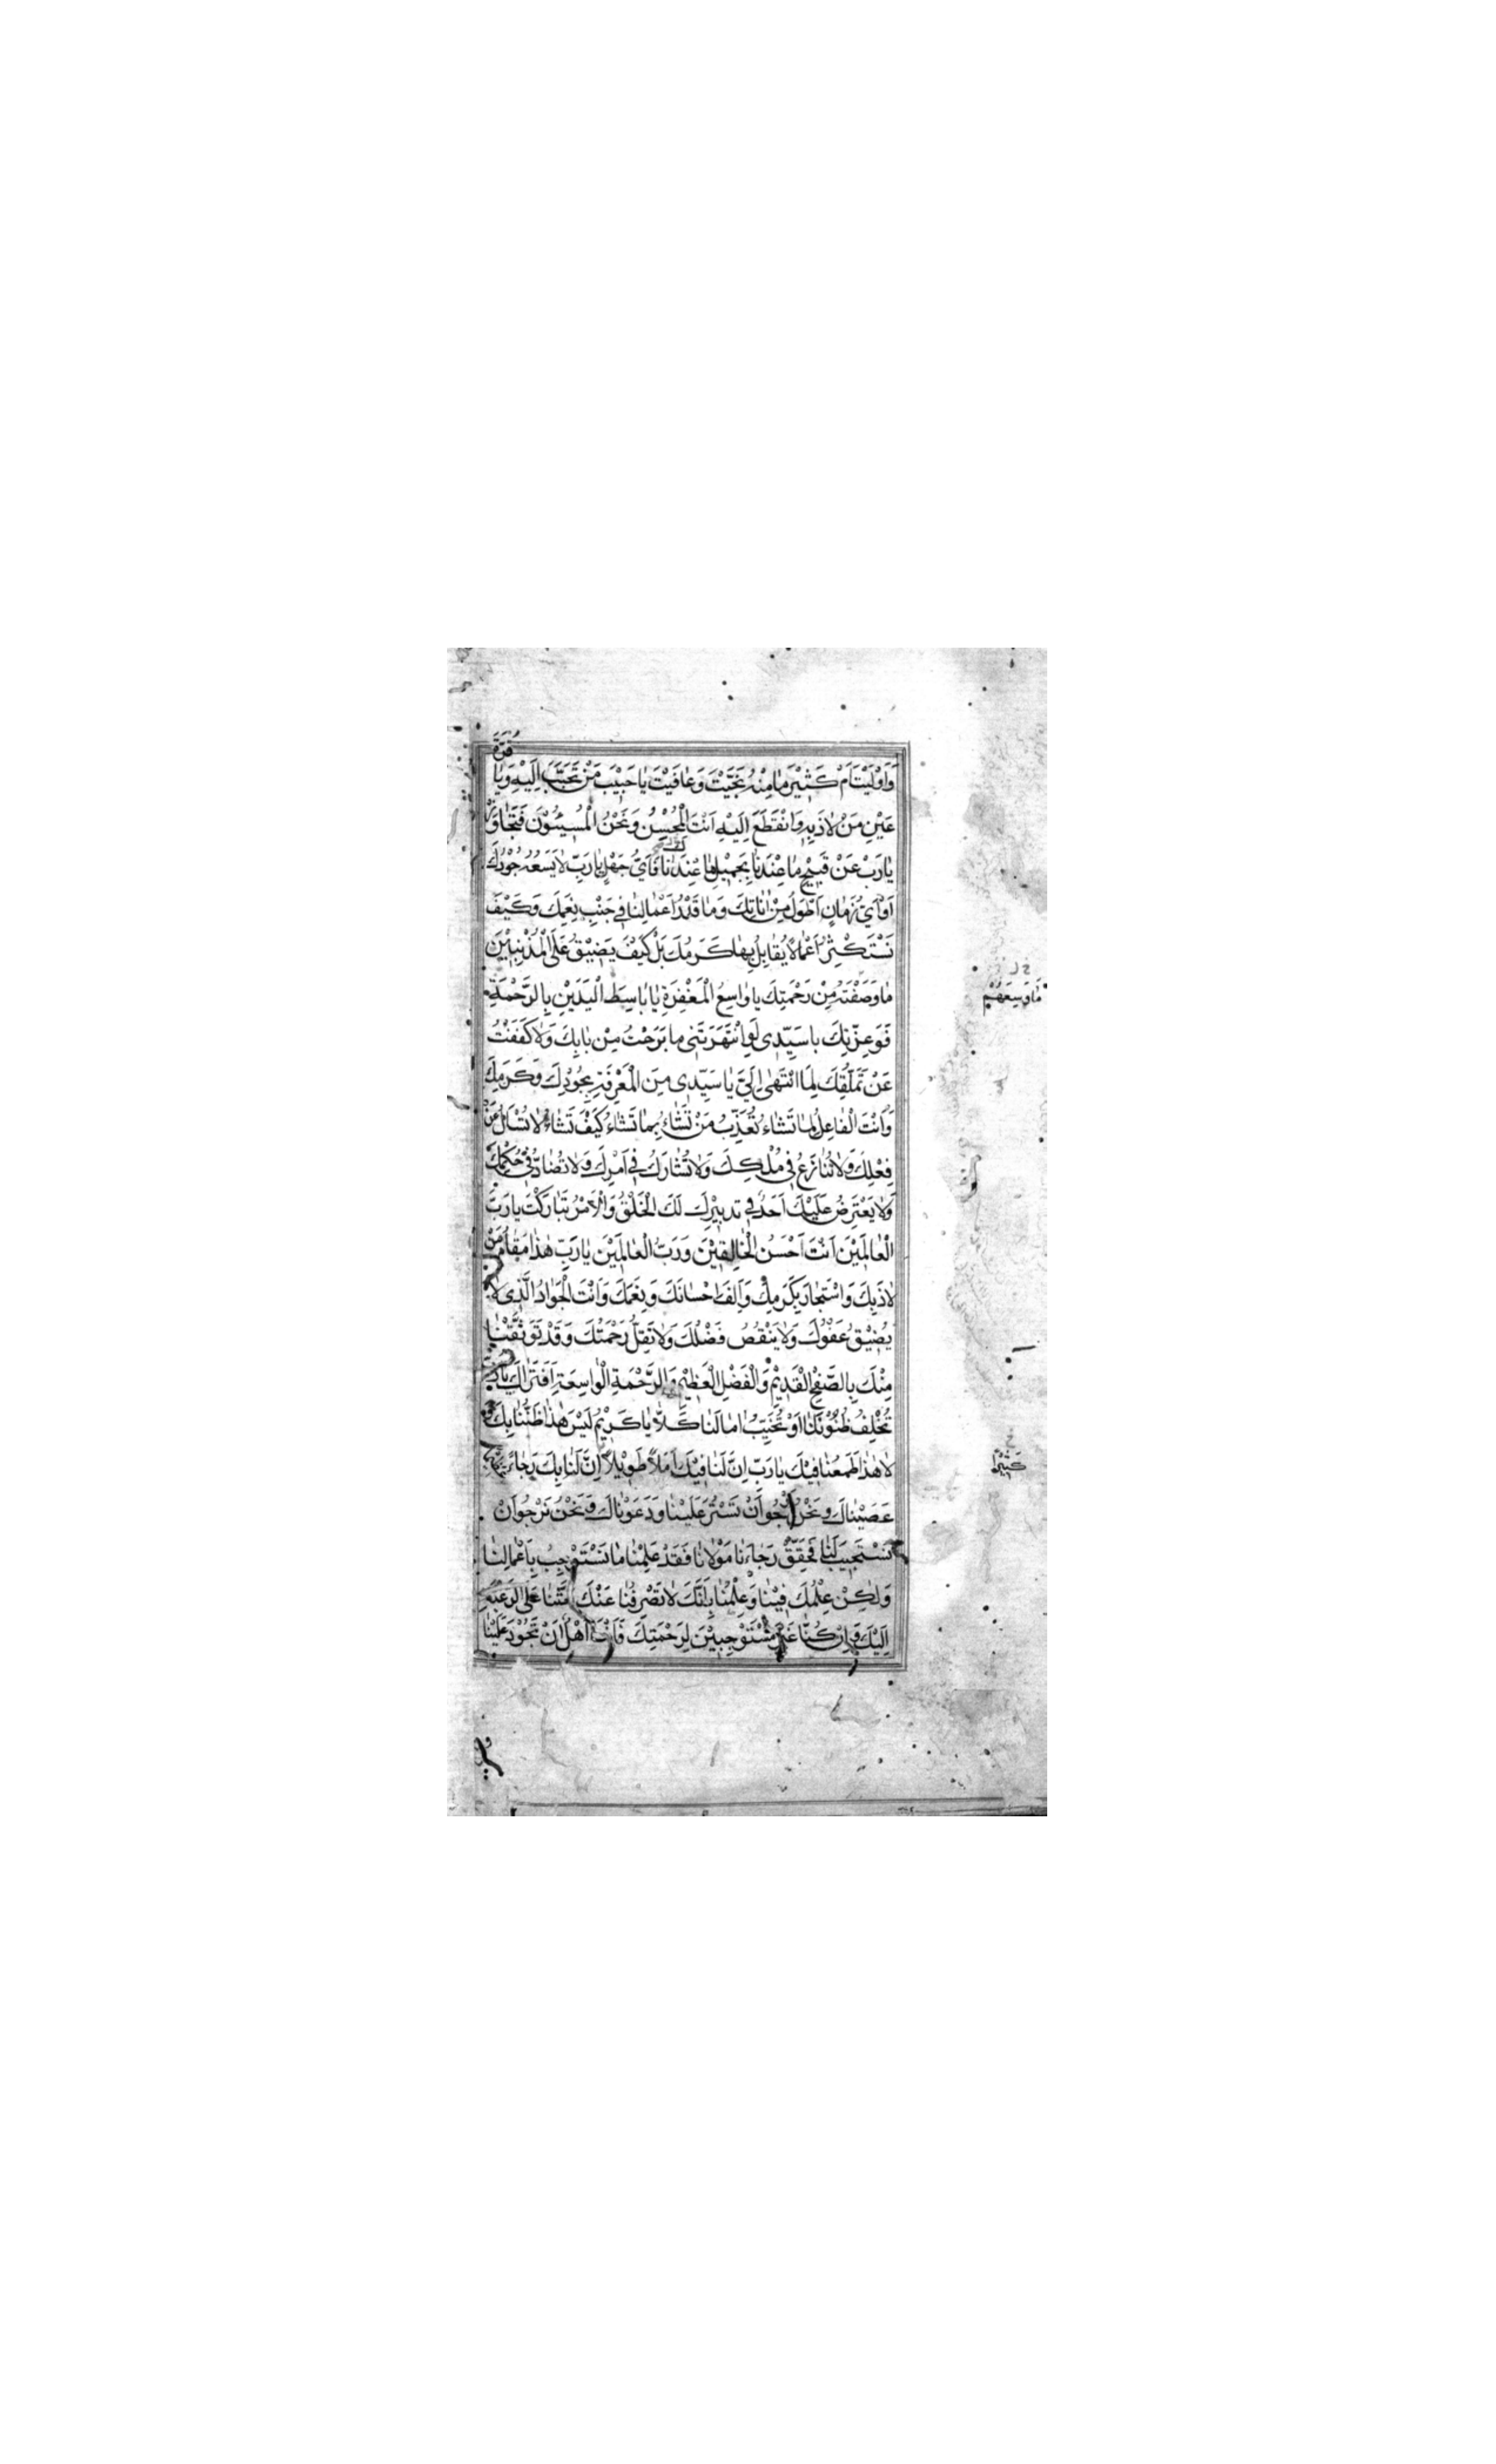 قُرَّةَ
وَاَوْلَيْتَ اَمْ كَثِيْرَ مٰا مِنْهُ نَجَّيْتَ وَعٰافَيْتَ يٰا حَبِيْبَ مَنْ تَحَبَّبَ اِلَيْهِ وَيٰا
عَيْنِ مَنْ لاٰذَ بِهِ وَانْقَطَعَ اِلَيْهِ اَنْتَ الْمُحْسِنُ وَنَحْنُ الْمُسِيْئُوْنَ فَتَجٰاوَزْ
يٰا رَبْ عَنْ قَبِيْحِ مٰا عِنْدَنٰا بِجَمِيْلِ مٰا عِنْدَكَ فَاَيُّ جَهْلٍ يٰا رَبِّ لاٰ يَسَعُهُ جُوْدُكَ
اَوْ اَيُّ زَمٰانٍ اَطْوَلُ مِنْ اَنٰاتِكَ وَمٰا قَدْرُ اَعْمٰالِنٰا فِي جَنْبِ نِعَمِكَ وَكَيْفَ
نَسْتَكْثِرُ اَعْمٰالاً يُقٰابِلُ بِهٰا كَرَمُكَ بَلْ كَيْفَ يَضِيْقُ عَلَى الْمُذْنِبِيْنَ
مٰا وَسِعَهُمْ
مٰا وَصَفْتَهُ مِنْ رَحْمَتِكَ يا وٰاسِعُ الْمَغْفِرَةِ يٰا بٰاسِطَ الْيَدَيْنِ بِالرَّحْمَةِ
فَوَعِزَّتِكَ يا سَيِّدِى لَوِ انْتَهَرْتَنِى مٰا بَرَحْتُ مِنْ بٰابِكَ وَلاٰ كَفَفْتُ
عَنْ تَمَلُّقِكَ لِمَا انْتَهٰى اِلَيَّ يٰا سَيِّدِى مِنَ الْمَعْرِفَةِ بِجُوْدِكَ وَكَرَمِكَ
وَاَنْتَ الْفٰاعِلُ لِمٰا تَشٰاءُ تُعَذِّبُ مَنْ تَشٰاءُ بِمٰا تَشٰاءُ كَيْفَ تَشٰاءُ لاٰ تُسْاَلُ عَنْ
فِعْلِكَ وَلاٰ تُنٰازَعُ فِى مُلْكِكَ وَلاٰ تُشٰارَكُ فِي اَمْرِكَ وَلاٰ تُضٰادُّ فِي حُكْمِكَ
وَلاٰ يَعْتَرِضُ عَلَيْكَ اَحَدٌ فِي تَدْبِيْرِكَ لَكَ الْخَلْقُ وَالْاَمْرُ تَبٰارَكْتَ يٰا رَبَّ
الْعٰالَمِيْنَ اَنْتَ اَحْسَنُ الْخٰالِقِيْنَ وَرَبُّ الْعٰالَمِيْنَ يٰا رَبِّ هٰذٰا مَقٰامُ مَنْ
لاٰذَ بِكَ وَاسْتَجٰارَ بِكَرَمِكَ وَاَلِفَ اِحْسٰانَكَ وَنِعَمَكَ وَاَنْتَ الْجَوٰادُ الَّذِى لاٰ
يَضِيْقُ عَفْوُكَ وَلاٰ يَنْقُصُ فَضْلُكَ وَلاٰ تَقِلُّ رَحْمَتُكَ وَقَدْ تَوَثَّقْنٰا
مِنْكَ بِالصَّفْحِ الْقَدِيْمِ وَالْفَضْلِ الْعَظِيْمِ وَالرَّحْمَةِ الْوٰاسِعَةِ اَفَتَرٰاكَ يٰا رَبِّ
تُخْلِفُ ظُنُوْنَنٰا اَوْ تُخَيِّبُ اٰمٰالَنٰا كَلاّٰ يٰا كَرِيْمُ لَيْسَ هٰذٰا ظَنُّنٰا بِكَ وَ
لاٰ هٰذٰا طَمَعُنٰا فِيْكَ يٰا رَبِّ اِنَّ لَنٰا فِيْكَ اَمَلاً طَوِيْلاً اِنَّ لَنٰا بِكَ رَجٰاءً
كَثِيْرًا
عَصَيْنٰاكَ وَنَحْنُ نَرْجُو اَنْ تَسْتُرَ عَلَيْنٰا وَدَعَوْنٰاكَ وَنَحْنُ نَرْجُو اَنْ
تَسْتَجِيْبَ لَنٰا فَحَقِّقْ رَجٰاءَنٰا مَوْلاٰنٰا فَقَدْ عَلِمْنٰا مٰا نَسْتَوْجِبُ بِاَعْمٰالِنٰا
وَلٰكِنْ عِلْمُكَ فِيْنٰا وَعِلْمُنٰا بِاَنَّكَ لاٰ تَصْرِفُنٰا عَنْكَ حَثَّنٰا عَلَى الرَّغْبَةِ
اِلَيْكَ وَاِنْ كُنّٰا غَيْرَ مُسْتَوْجِبِيْنَ لِرَحْمَتِكَ فَاَنْتَ اَهْلٌ اَنْ تَجُوْدَ عَلَيْنٰا